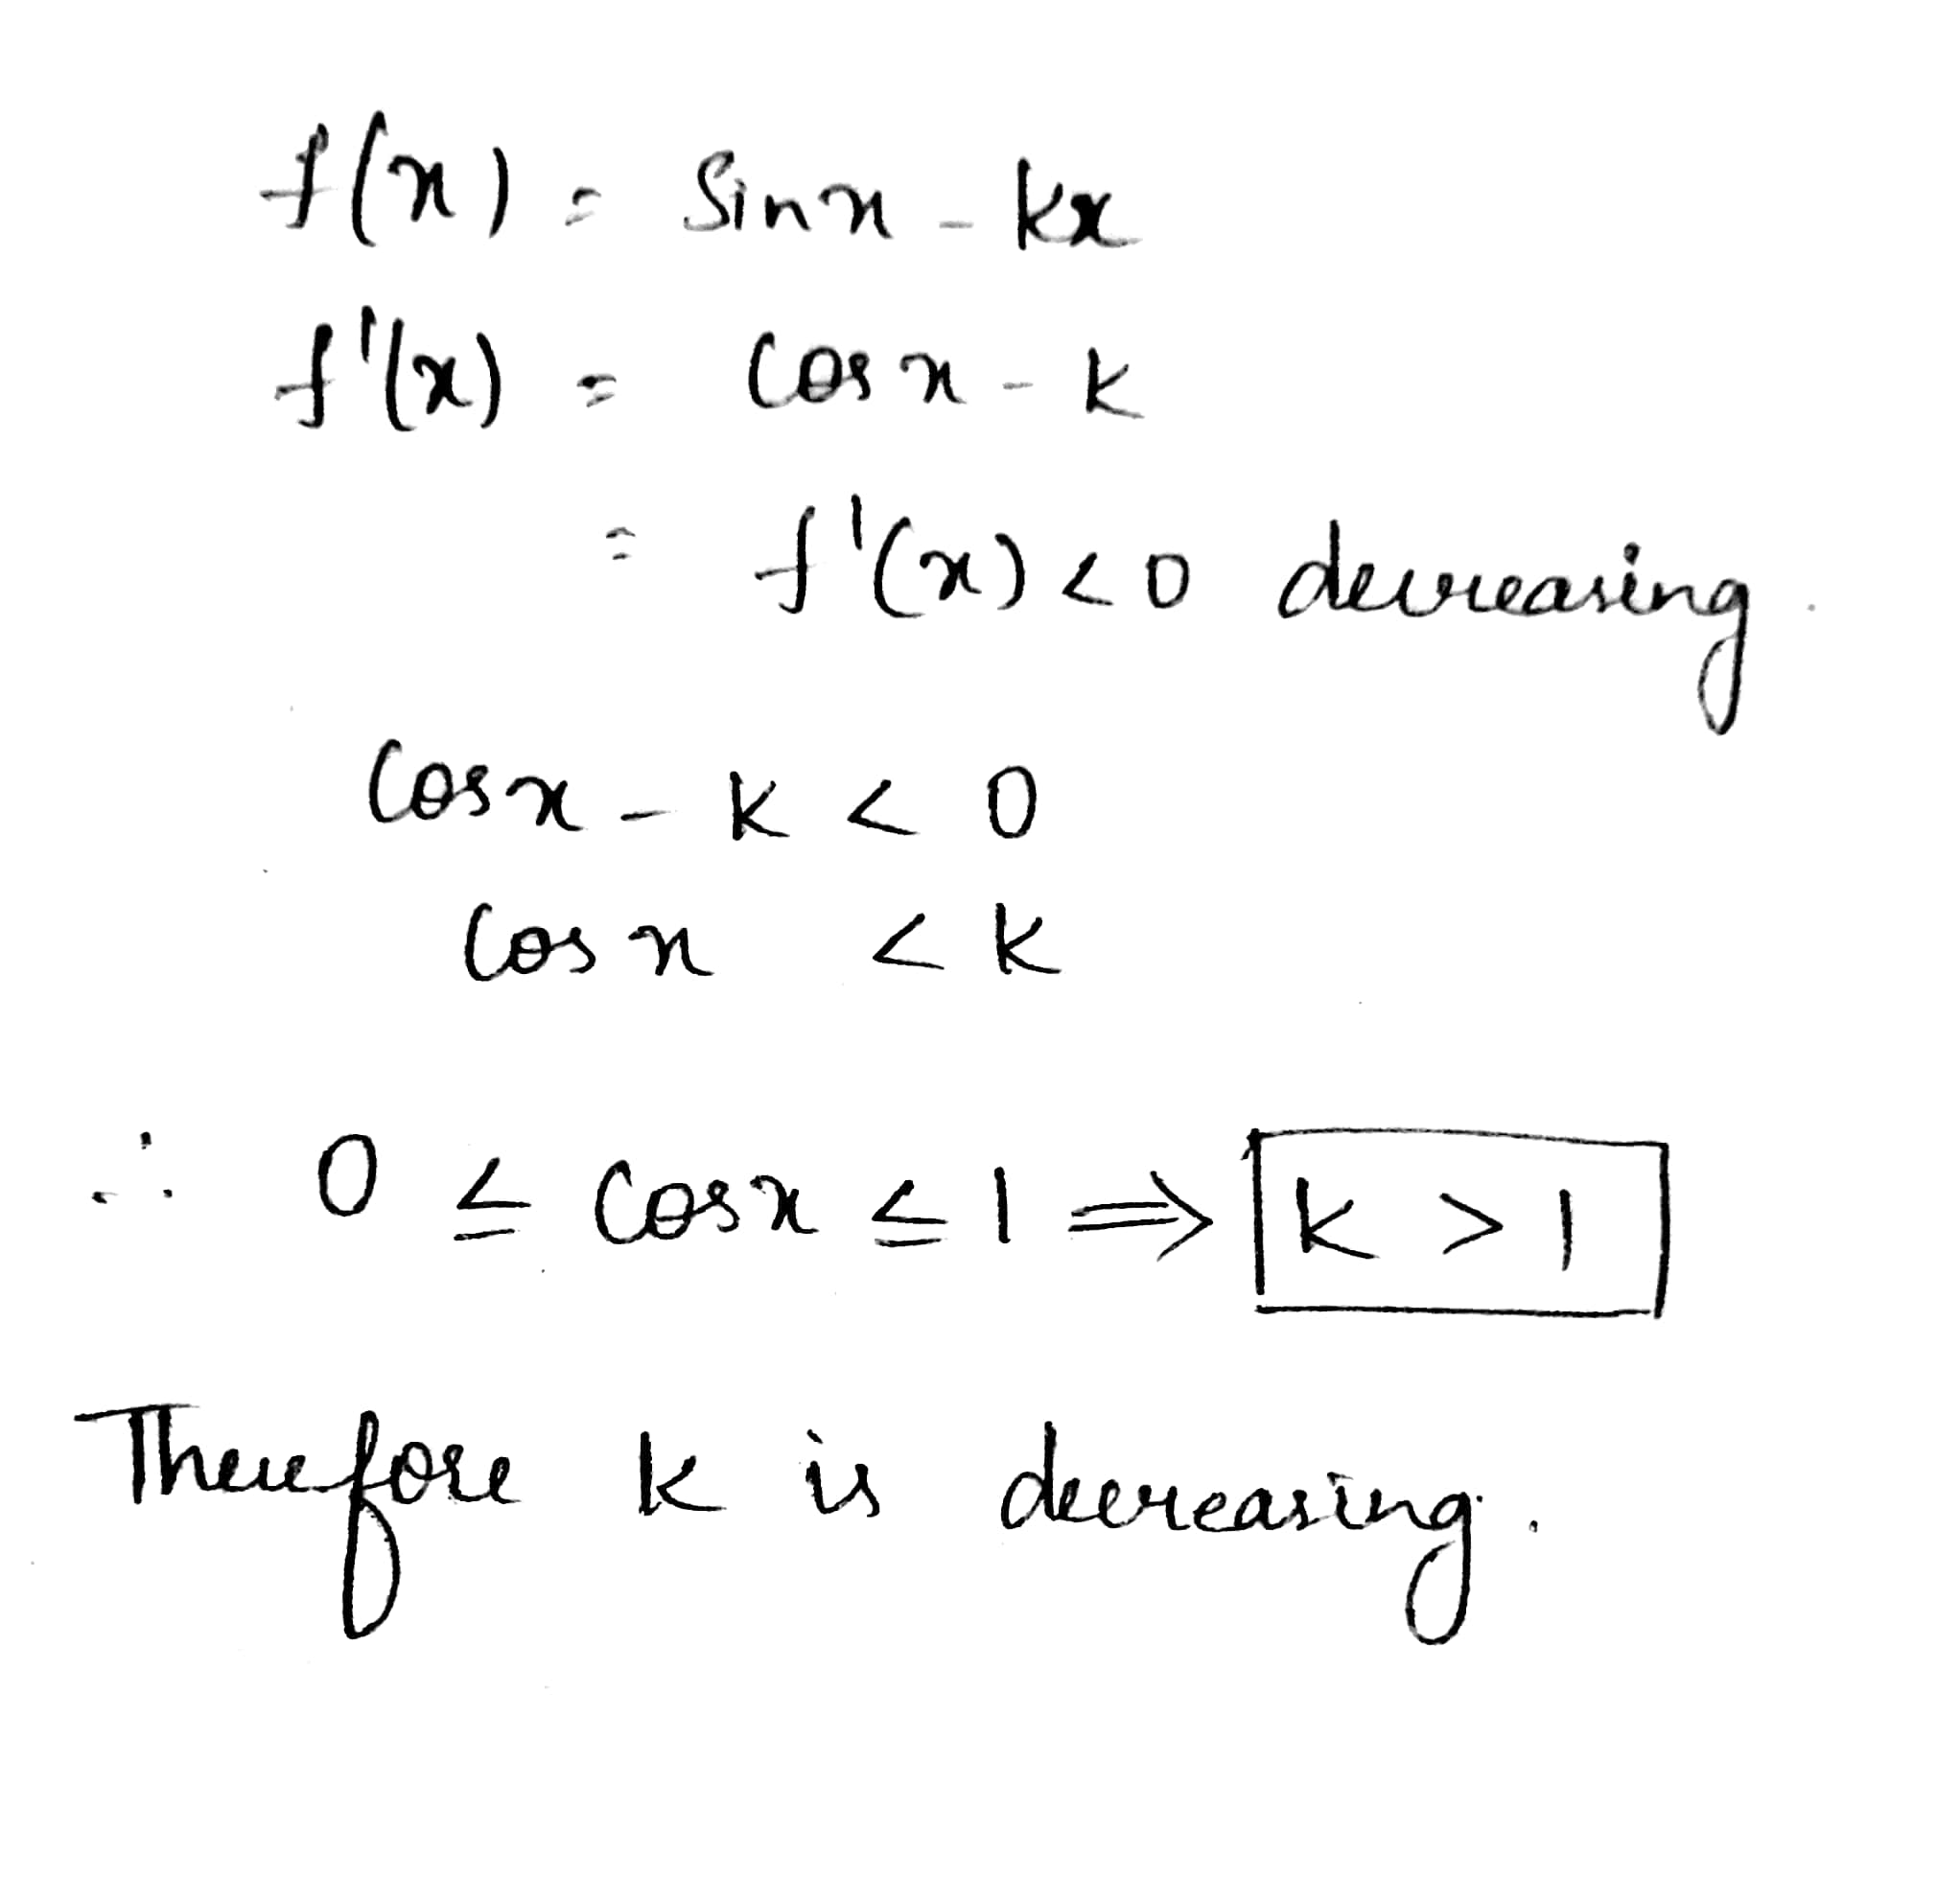 f(x) = Sinx - kx
f'(x) = Cosx - k
= f'(x) < 0 decreasing.
Cosx - k < 0
Cosx < k
∴ 0 ≤ Cosx ≤ 1 ⇒ k > 1
Therefore k is decreasing.